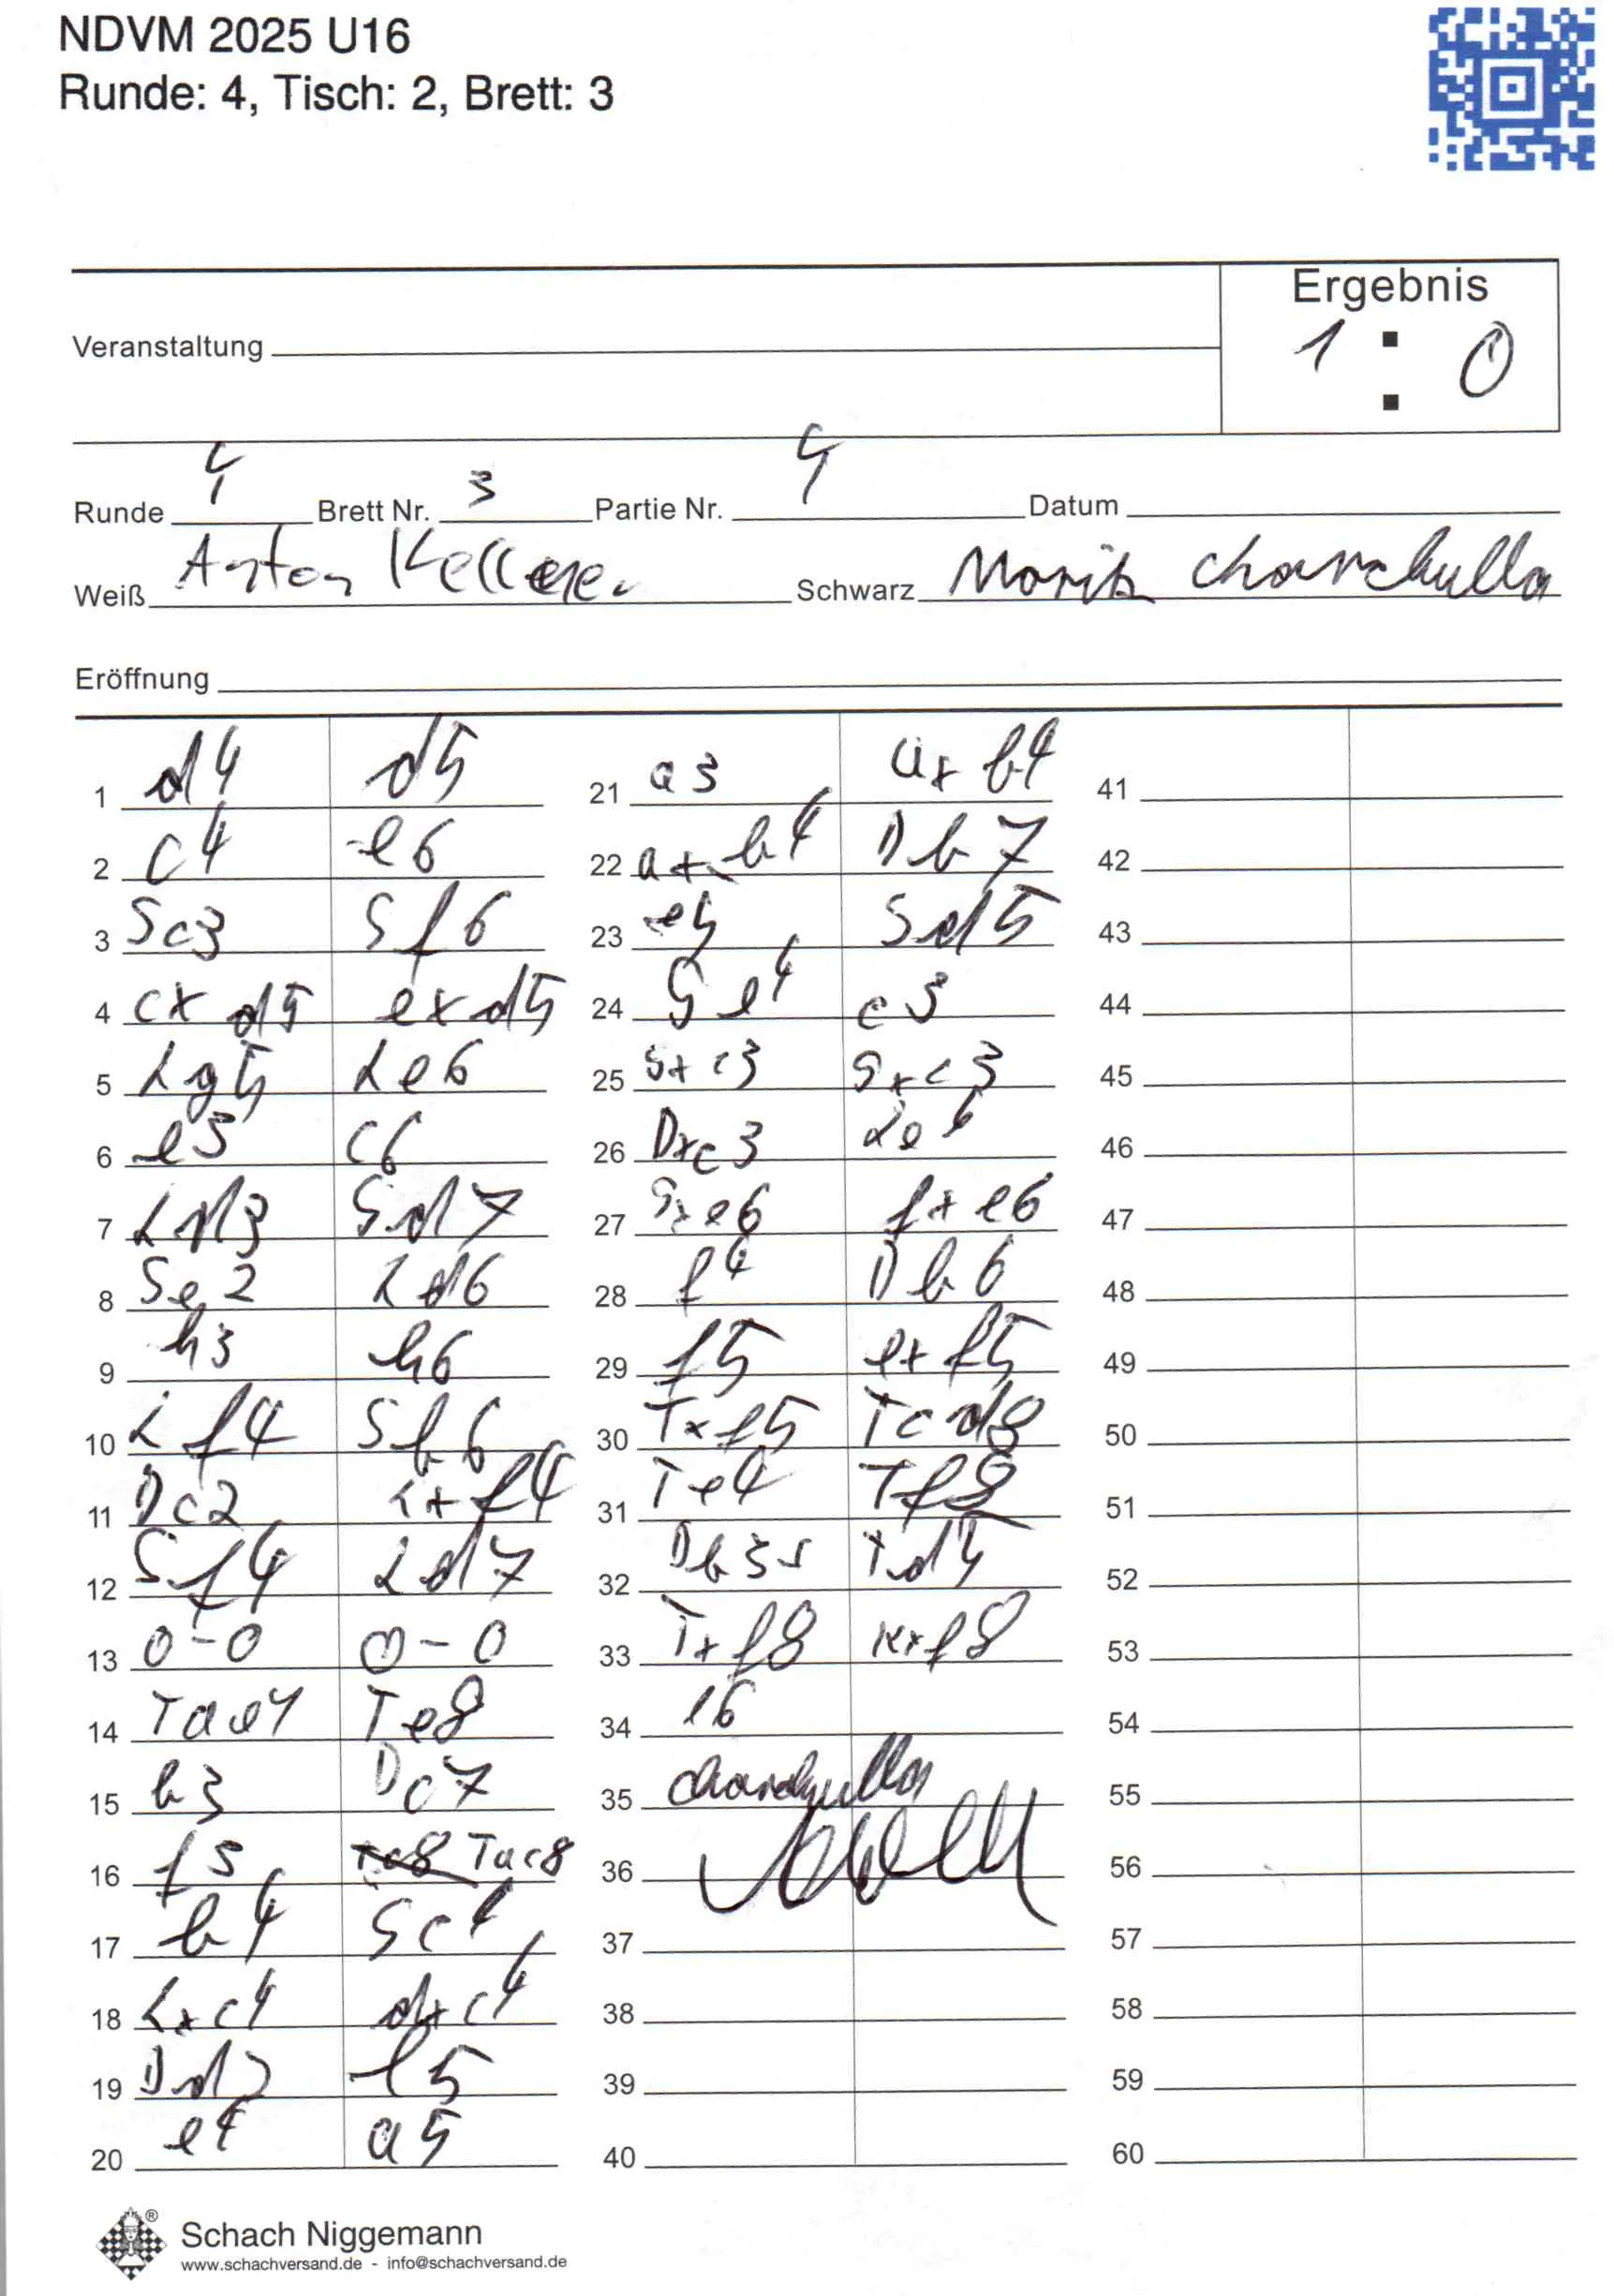 NDVM 2025 U16
Runde: 4, Tisch: 2, Brett: 3
Ergebnis
1 : 0
Veranstaltung
Runde 4 Brett Nr. 3 Partie Nr. 4 Datum
Weiß Anton Schwarz
Eröffnung
1 d4 d5
2 c4 e6
3 Sc3 Sf6
4 cxd5 exd5
5 Lg5 Le6
6 e3 c6
7 Ld3 Sd7
8 Se2 Ld6
9 h3 h6
10 Lf4 Sb6
11 Dc2 Lxf4
12 Sf4 Ld7
13 0-0 0-0
14 Tae1 Te8
15 b3 Dc7
16 f3 Tac8
17 b4 Sc4
18 Lxc4 dxc4
19 Dd2 b5
20 e4 a5
21 a3 axb4
22 axb4 Db7
23 e5 Sd5
24 Se4 c3
25 Sxc3 Sxc3
26 Dxc3 Le6
27 Sxe6 fxe6
28 f4 Db6
29 f5 exf5
30 Txf5 Tcd8
31 Te4 Tf8
32 Db3 Td5
33 Txf8 Kxf8
34 e6
35
36
37
38
39
40
41
42
43
44
45
46
47
48
49
50
51
52
53
54
55
56
57
58
59
60
® Schach Niggemann
www.schachversand.de - info@schachversand.de